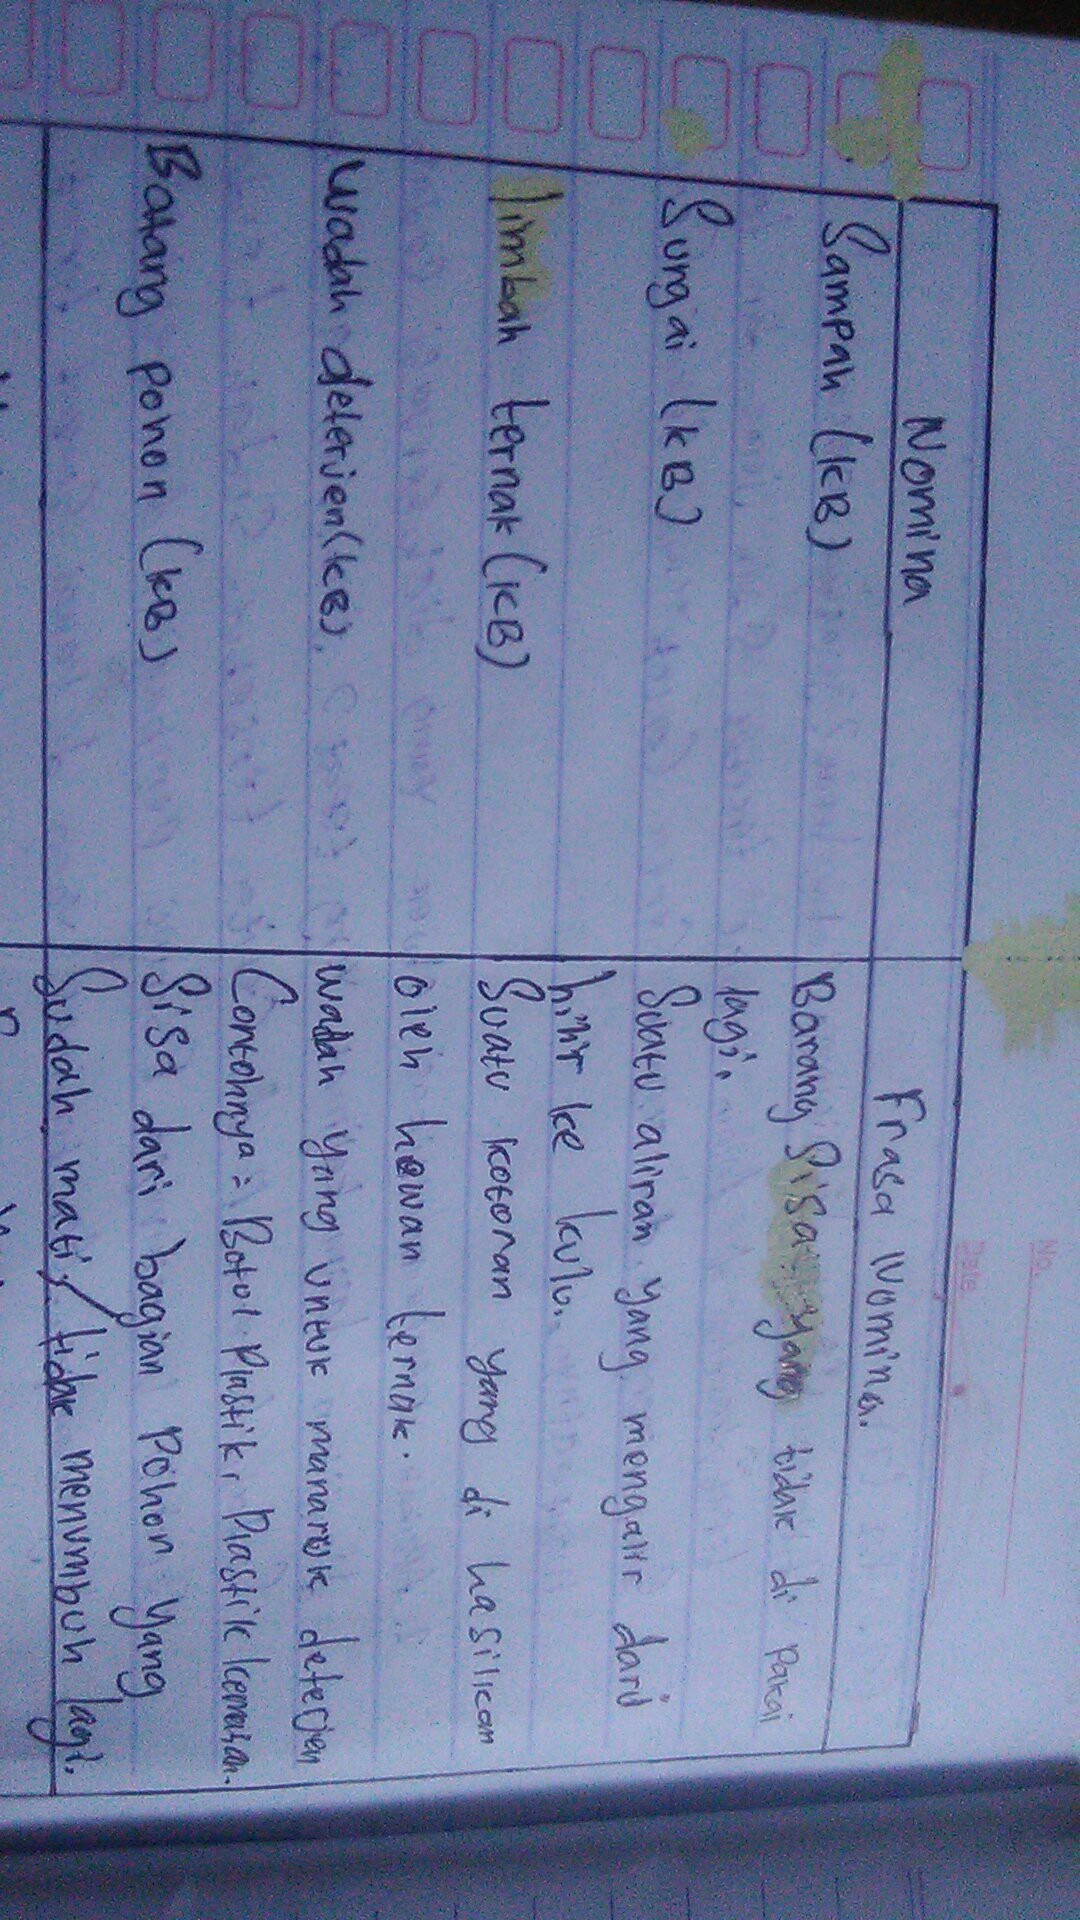 No.
Date
Nomina
Frasa Nomina.
Sampah (KB)
Barang Sisa yang tidak di pakai
lagi.
Sungai (KB)
Suatu aliran yang mengalir dari
hilir ke hulu.
limbah ternak (KB)
Suatu kotoran yang di hasilkan
oleh hewan ternak.
Wadah deterjen (KB)
wadah yang untuk manaruk deterjen
Contohnya = Botol Plastik, Plastik kemasan.
Batang pohon (KB)
Sisa dari bagian pohon yang
Sudah mati / tidak menumbuh lagi.